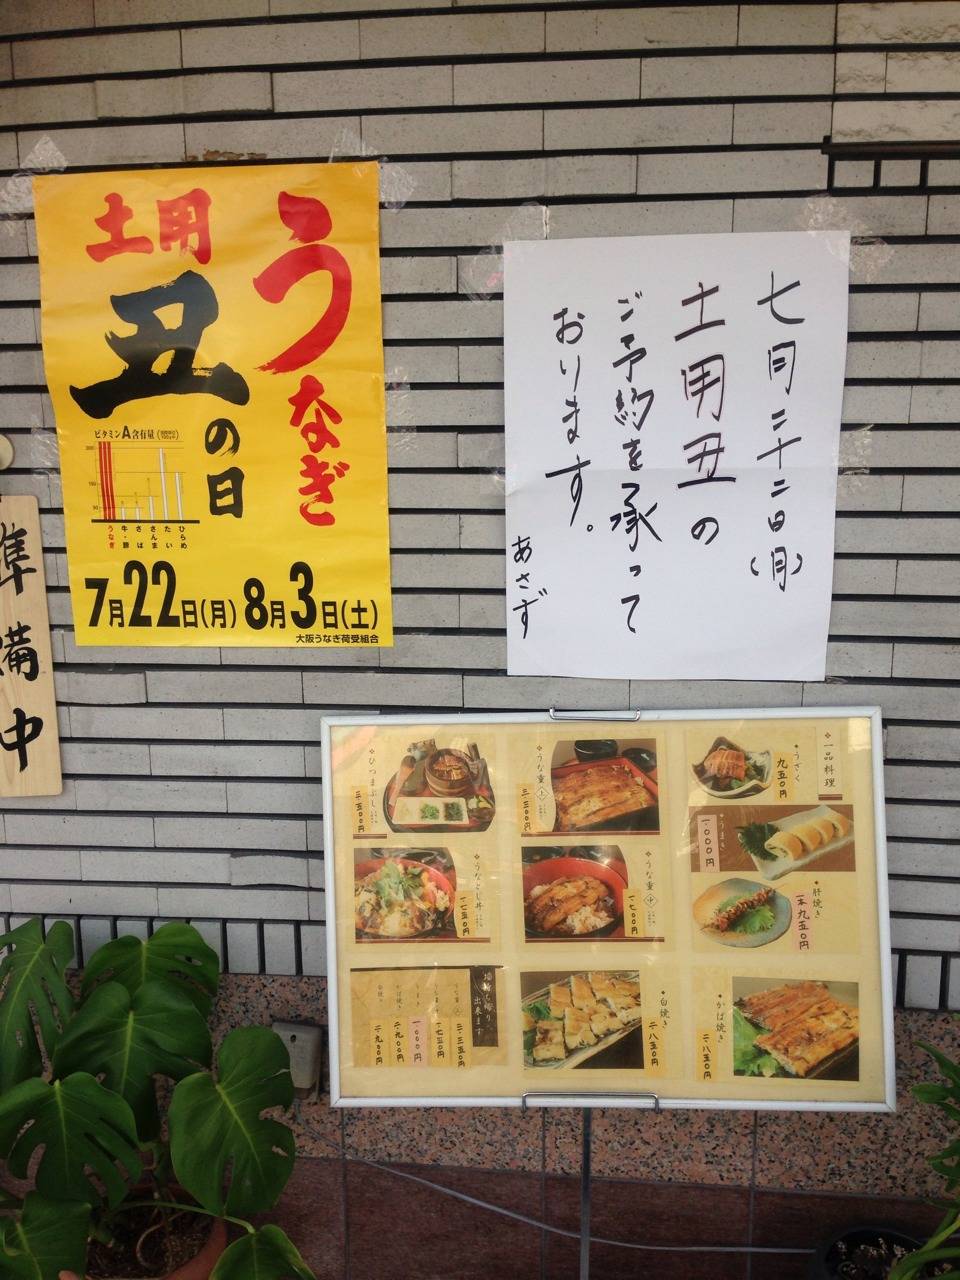 うなぎ
土用
丑の日
ビタミンA含有量
うなぎ
牛・豚
さば
さんま
たい
ひらめ
7月22日(月) 8月3日(土)
大阪うなぎ荷受組合
七月二十二日(月)
土用丑の
ご予約を承って
おります。
あさず
準備中
一品料理
うざく
九五〇円
うまき
一、〇〇〇円
肝焼き
一本九五〇円
かば焼き
二、八五〇円
うな重(上)
三、三〇〇円
うな重(中)
白焼き
二、八五〇円
ひつまぶし
うなとじ丼
一七五〇円
出来ます
うなまき
一〇〇〇円
かば焼き
二、九〇〇円
白焼き
二、九〇〇円